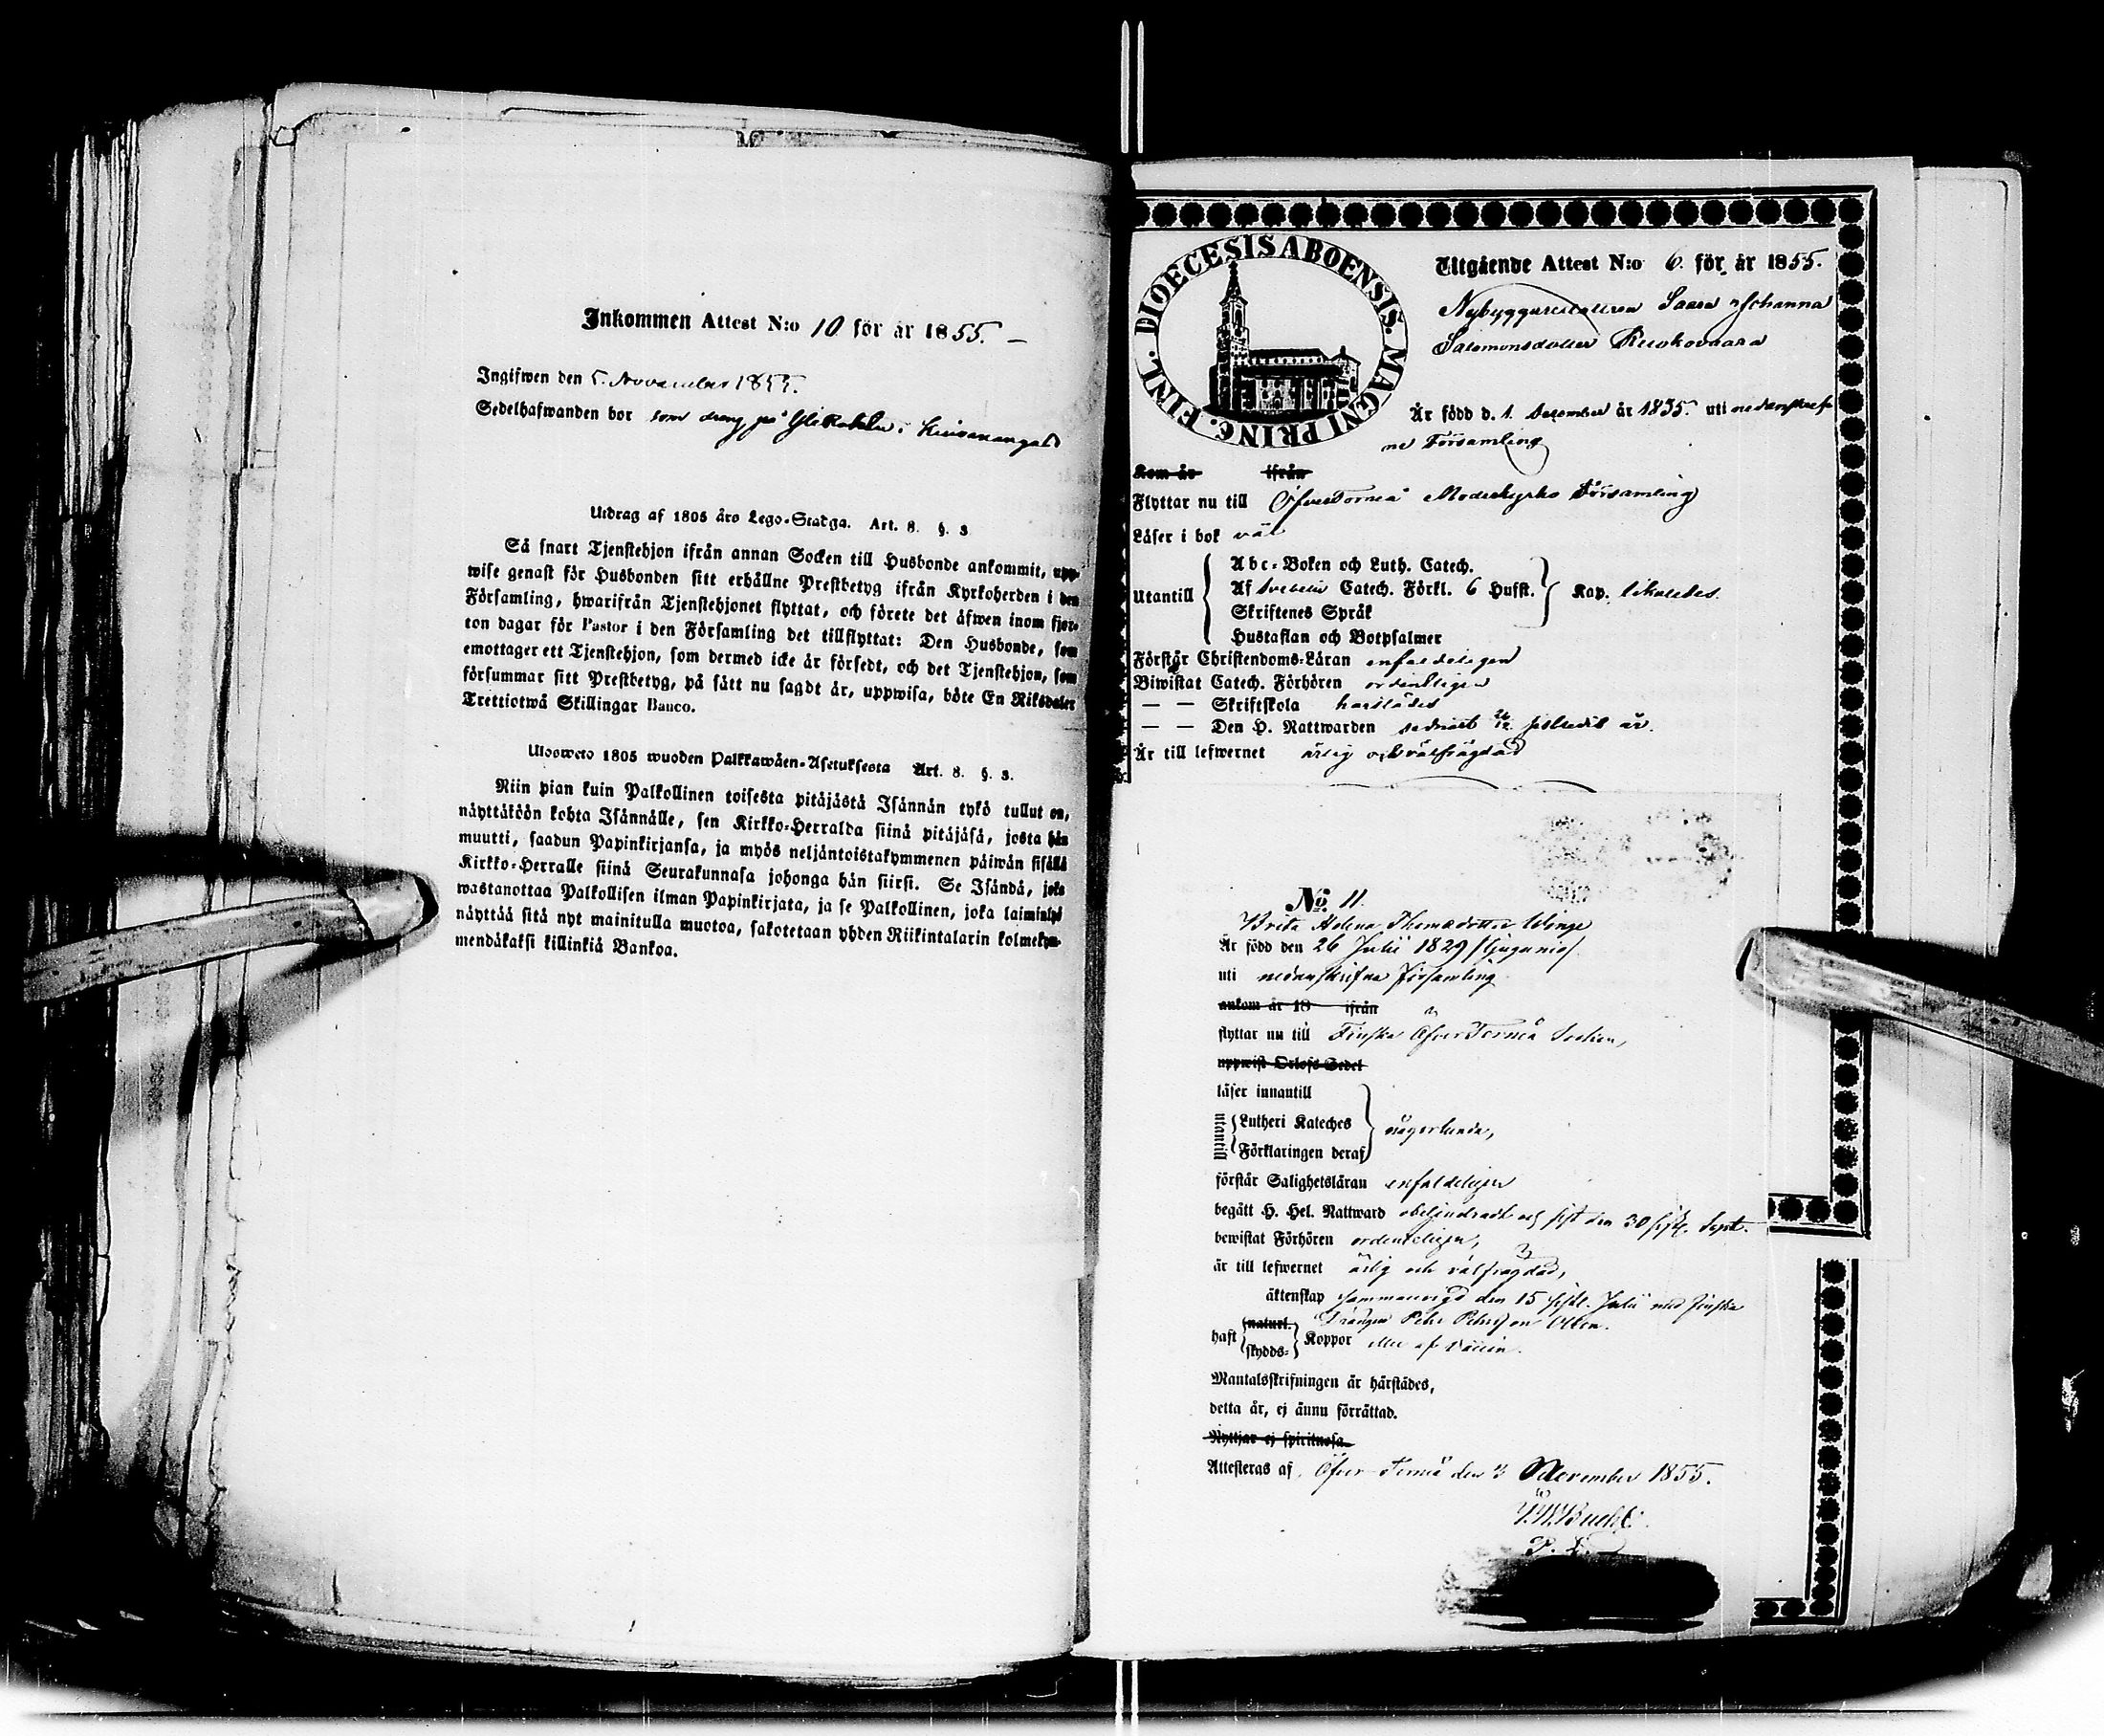 Inkommen Attest N:o 10 för år 1855. –
Ingifwen den 5. November 1855.
Sedelhafwanden bor som dräng på
Utdrag af 1805 års Lego-Stadga. Art. 8. §. 3
Så snart Tjenstehjon ifrån annan Socken till Husbonde ankommit, upp-
wise genast för Husbonden sitt erhållne Prestbetyg ifrån Kyrkoherden i den
Församling, hwarifrån Tjenstehjonet flyttat, och förete det äfwen inom fjor-
ton dagar för Pastor i den Församling det tillflyttat: Den Husbonde, som
emottager ett Tjenstehjon, som dermed icke är försedt, och det Tjenstehjon, som
försummar sitt Prestbetyg, på sätt nu sagdt är, uppwisa, böte En Riksdaler
Trettiotwå Skillingar Banco.
Ulosweto 1805 wuoden Palkkawäen-Asetuksesta Art. 8. §. 3.
Niin pian kuin Palkollinen toisesta pitäjästä Isännän tykö tullut on,
näyttäköön kohta Isännälle, sen Kirkko-Herralda siinä pitäjäsä, josta hän
muutti, saadun Papinkirjansa, ja myös neljäntoistakymmenen päiwän sisällä
Kirkko-Herralle siinä Seurakunnasa johonga hän siirsi. Se Isändä, joka
wastanottaa Palkollisen ilman Papinkirjata, ja se Palkollinen, joka laiminlyö
näyttää sitä nyt mainitulla muotoa, sakotetaan yhden Riikintalarin kolmekym-
mendäkaksi killinkiä Bankoa.
DIOECESIS ABOENSIS. MAGNI PRINC. FINL.
Utgående Attest N:o 6. för år 1855.
Nybyggaredottren Saara Johanna
Salomonsdotter Ruokovaara
Är född d. 1. December år 1835. uti nedanskref-
ne Församling
Kom år ifrån
Flyttar nu till ÖfverTorneå Moderkyrko Församling
Läser i bok väl
Utantill
Abc-Boken och Luth. Catech.
Af Svebelii Catech. Förkl. 6 Hufst.
Skriftenes Språk
Hustaflan och Botpsalmer
Kap. likaledes.
Förstår Christendoms-Läran enfaldeligen
Biwistat Catech. Förhören ordentligen
— — Skriftskola härstädes
— — Den H. Nattwarden sednast 26/12 sistledit år.
Är till lefwernet ärlig och välfrägdad
No. 11.
Brita Helena Thomasdotter Winge
Är född den 26 Julii 1829
uti nedanskrifna församling
ankom år 18 ifrån
flyttar nu till Finska ÖfverTorneå Socken,
uppwist Orlofs-Sedel
läser innantill
utantill
Lutheri Kateches
Förklaringen deraf
någorlunda,
förstår Salighetsläran enfaldeligen
begått H. Hel. Nattward obehindradt och sist den 30 sistl. Sept.
bewistat Förhören ordenteligen,
är till lefwernet ärlig och välfrägdad,
äktenskap sammanvigd den 15 sistl. Julii med finska
Drängen Pehr Pehrsson Olken.
haft
naturl.
skydds-
Koppor
Mantalsskrifningen är härstädes,
detta år, ej ännu förrättad.
Nyttjar ej spirituosa.
Attesteras af, Öfver-Torneå den 3 November 1855.